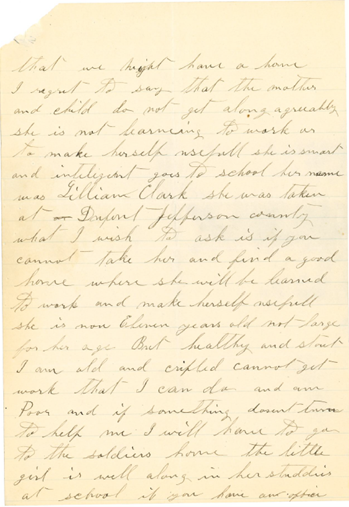 that we might have a home
I regret to say that the mother
and child do not get along agreeably
she is not learning to work or
to make herself usefull she is smart
and inteligent goes to school her name
was Lillian Clark she was taken
at Dupont Jefferson county
what I wish to ask is if you
cannot take her and find a good
home where she will be learned
to work and make herself usefull
she is now Eleven years old not large
for her age But healthy and stout
I am old and cripled cannot get
work that I can do and am
Poor and if something dosent turn
to help me I will have to go
to the soldiers home the little
girl is well along in her studdies
at school if you have any